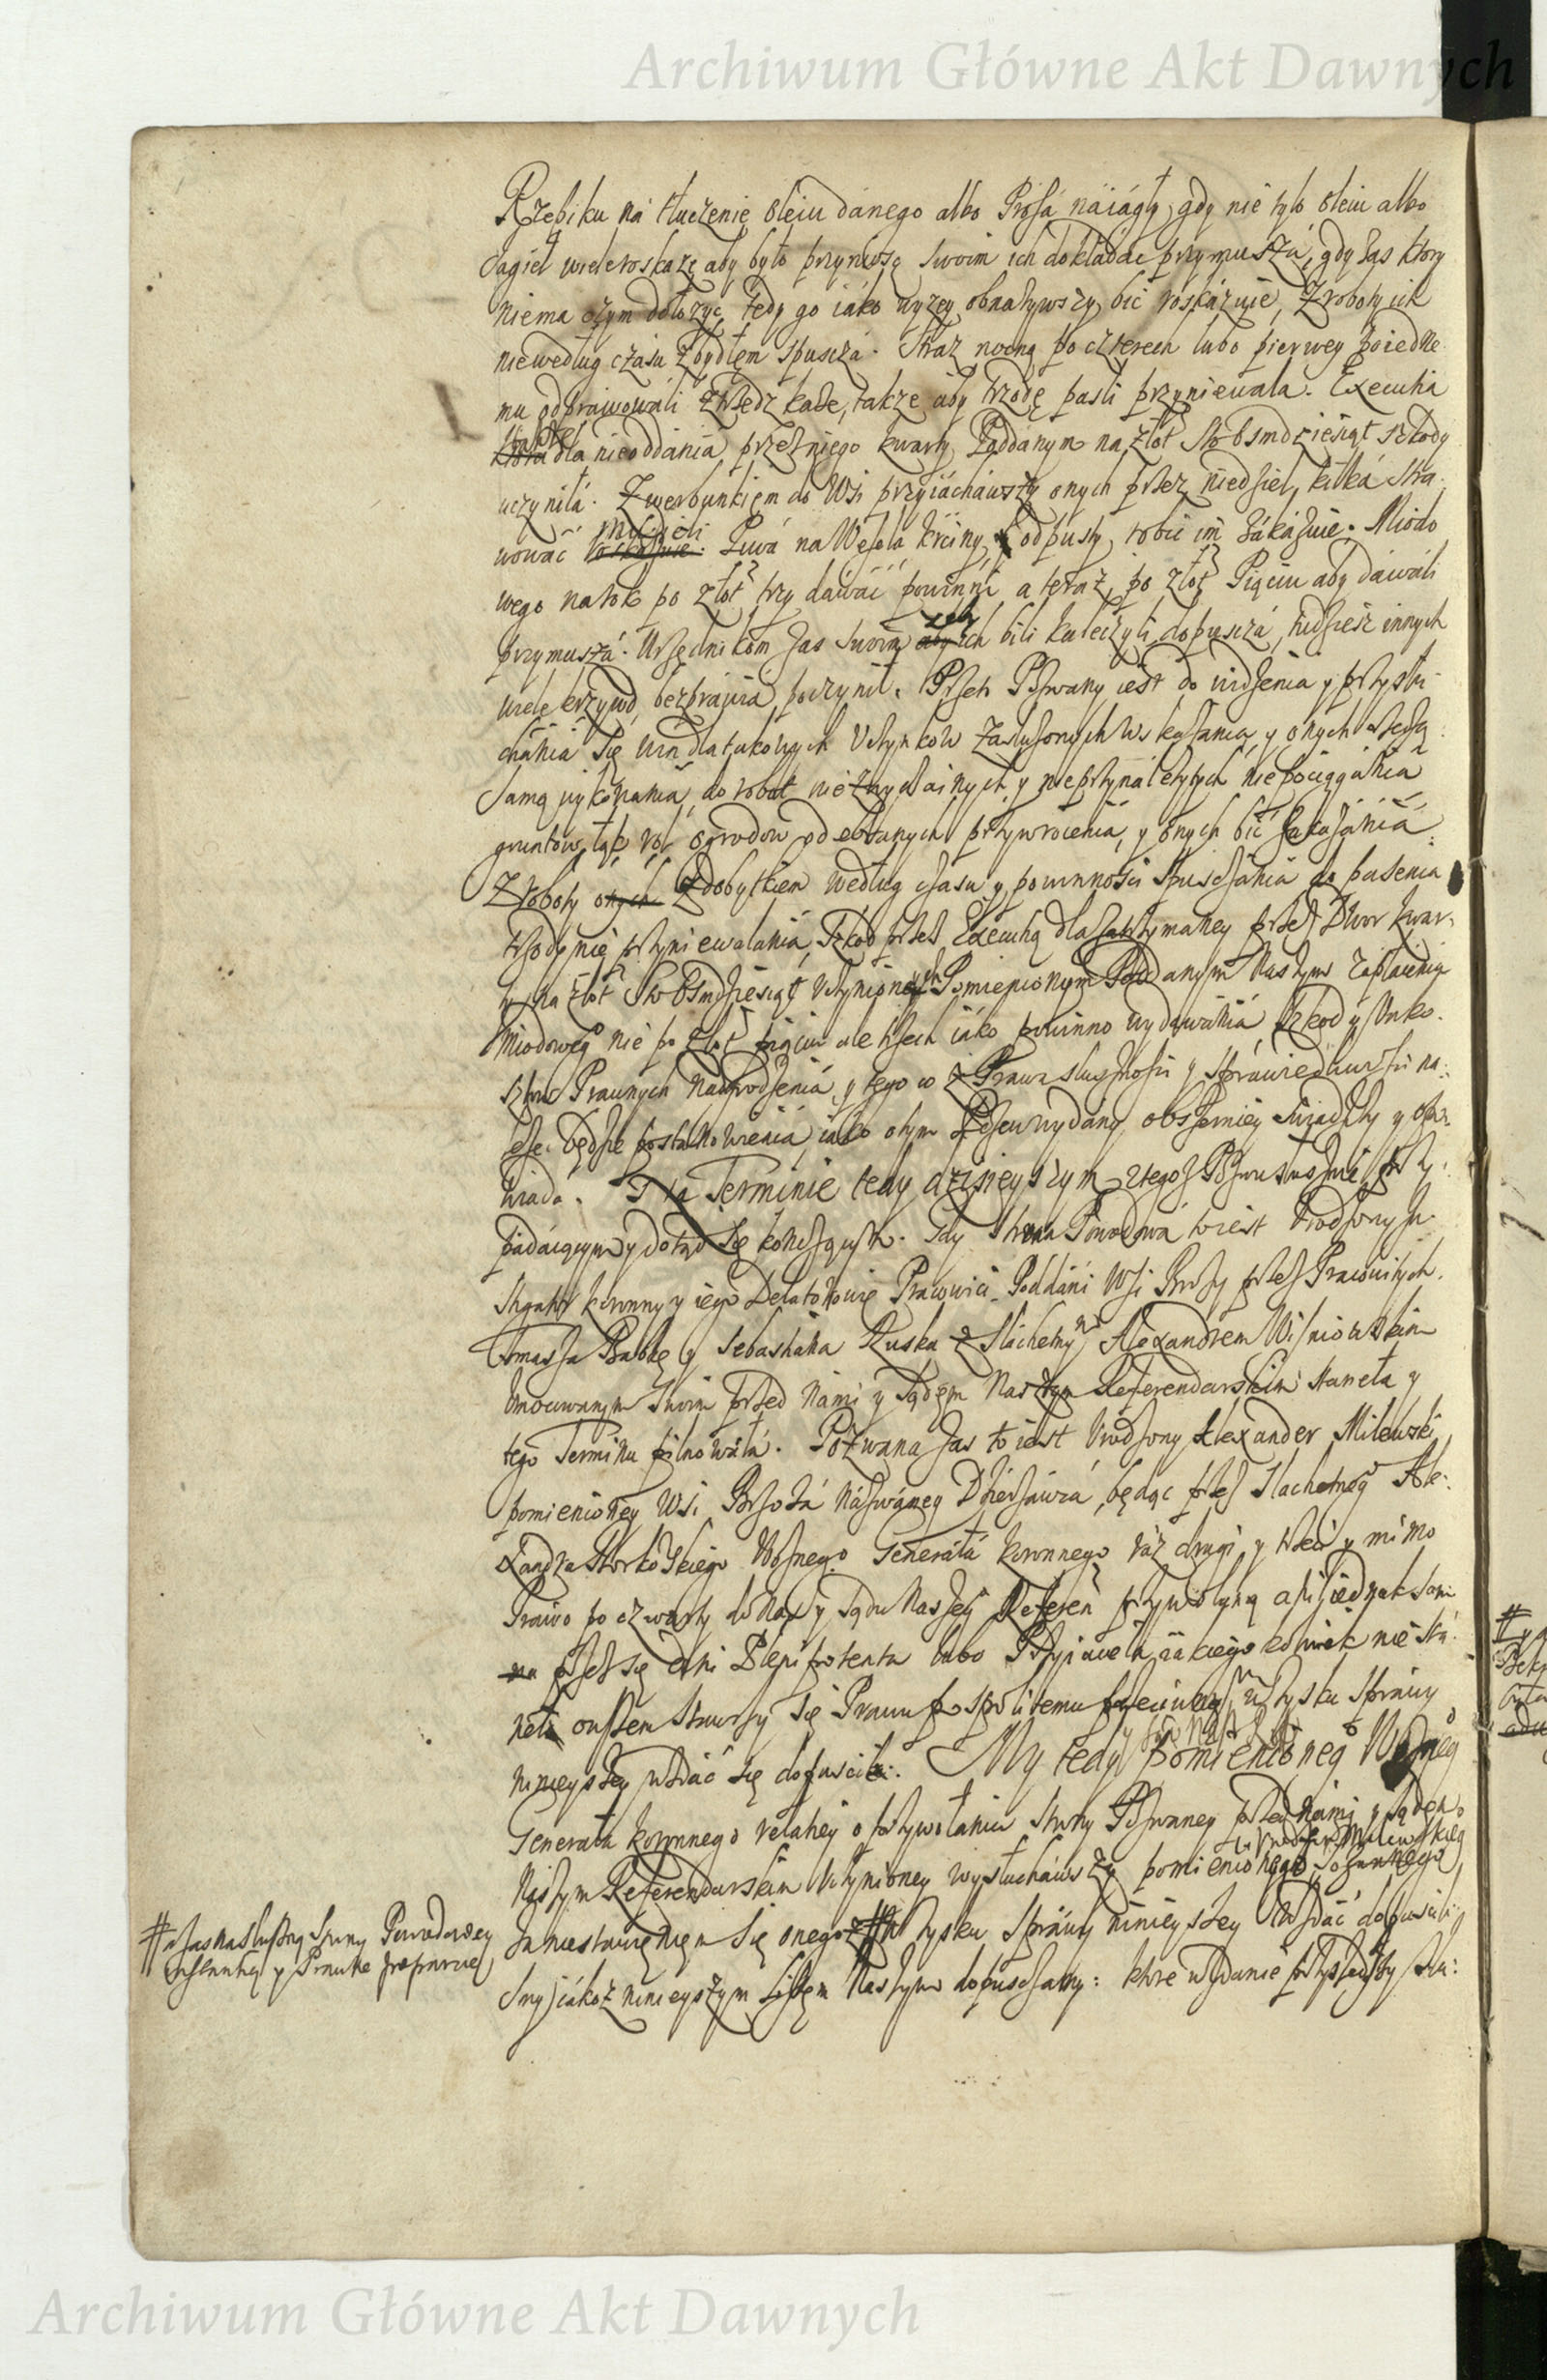 Archiwum Główne Akt Dawnych
Rzepiku na tłuczenie oleiu danego albo Prosa na iagły, gdy nie tylo oleiu albo
Jagieł wiele roskaże aby było przyniosą swoim ich dokładac przymusza, gdy zas ktory
niema czym dołozyc, tedy go iako wyzey obnazywszy bic roskazuie, Z roboty ich
niewedług czasu z bydłem spuscza. Straz nocną po czterech lubo pierwey poiedne
mu odprawowali strzedz kaze, takze aby trzodę pasli przyniewala. Executia
także dla nieoddania przezniego kwarty Poddanym na złot Sto osmdziesiąt szkody
uczyniła. Z werbunkiem do Wsi przyiachawszy onych przez niedziel kilka stra
wować musieli. Piwa na Wesela krciny y odpusty robić im zakazuie. Miodo
wego na rok po złot trzy dawać powinni a teraz po złot Pięciu aby dawali
przymusza. Urzędnikom zas swoim zeby ich bili kaleczyli dopuscza, tudziesz innych
wiele krzywd bezprawia poczynił. Przeto Pozwany iest do widzenia y przysłu
chania się win dla takowych Uczynkow zasłuzonych wskazania y onych rzeczą
samą wykonania, do robot niezwyczainych y nieprzynalezytych niepociągania
gruntow, łąk, rol ogrodow odebranych przywrocenia, y onych bić zakazania
Z roboty Zdobytkiem według czasu y powinnosci spusczania do pasenia
trzody nie przyniewalania, Szkod przez Executią dla zatrzymaney przez Dwor kwar
ty na złot Sto Osmdziesiąt Uczynionych Pomienionym Poddanym Naszym zapłacenia
Miodowego nie po złot pięciu ale trzech iako powinno wydawania, Szkod y Unko
sztow Prawnych nadgrodzenia, y tego co z Prawa słusznosci y sprawiedliwosci na
leze będzie postanowienia, iako otym Pozew wydany obszerniey swiadczy y opo
wiada. Na Terminie tedy dzisieyszym z tegosz Pozwu słusznie przy
padaiącym y dotąd się konczącym. Gdy Strona Powodowa to iest Urodzony In
stigator koronny y iego Delatorowie Pracowici Poddani Wsi Brozy przez Pracowitych
Tomasza Babkę y Sebastiana Kuska z Slachetnym Alexandrem Wisniowskim
Umocowanym swoim przed Nami y Sądem Naszym Referendarskim stanęła y
tego Terminu pilnowała. Pozwana zas to iest Urodzony Alexander Milewski
pomienioney Wsi Broza nazwaney Dzierzawca, będąc przez Slachetnego Ale
xandra Storkoskiego Woznego Generała koronnego raz drugi y trzeci y mimo
Prawo po czwarty do Nas y Sądu Naszego Referen przywołyną a ni iednak sam
przez się ani Plenipotenta lubo Przyiaciela iakiegokolwiek nie sta
neła owszem stawszy się Prawu pospolitemu przeciwną w zysku sprawy
ninieyszey wzdać się dopusciła. My tedy pomienionego Woznego
Generała koronnego relatiey o przywołaniu strony Pozwaney przed Nami y Sądem
Naszym Referendarskim Uczynioney wysłuchawszy pomienionego Urodzonego Milewskiego Pozwanego
za niestawieniem się onego # w zysku sprawy ninieyszey wzdać dopuscili
smy iakosz ninieyszym Listem Naszym dopusczamy: ktore wzdanie przyszedszy Sla
# a zas na słuszną strony Powodowey
instantią y Prawne poparcie
Archiwum Główne Akt Dawnych